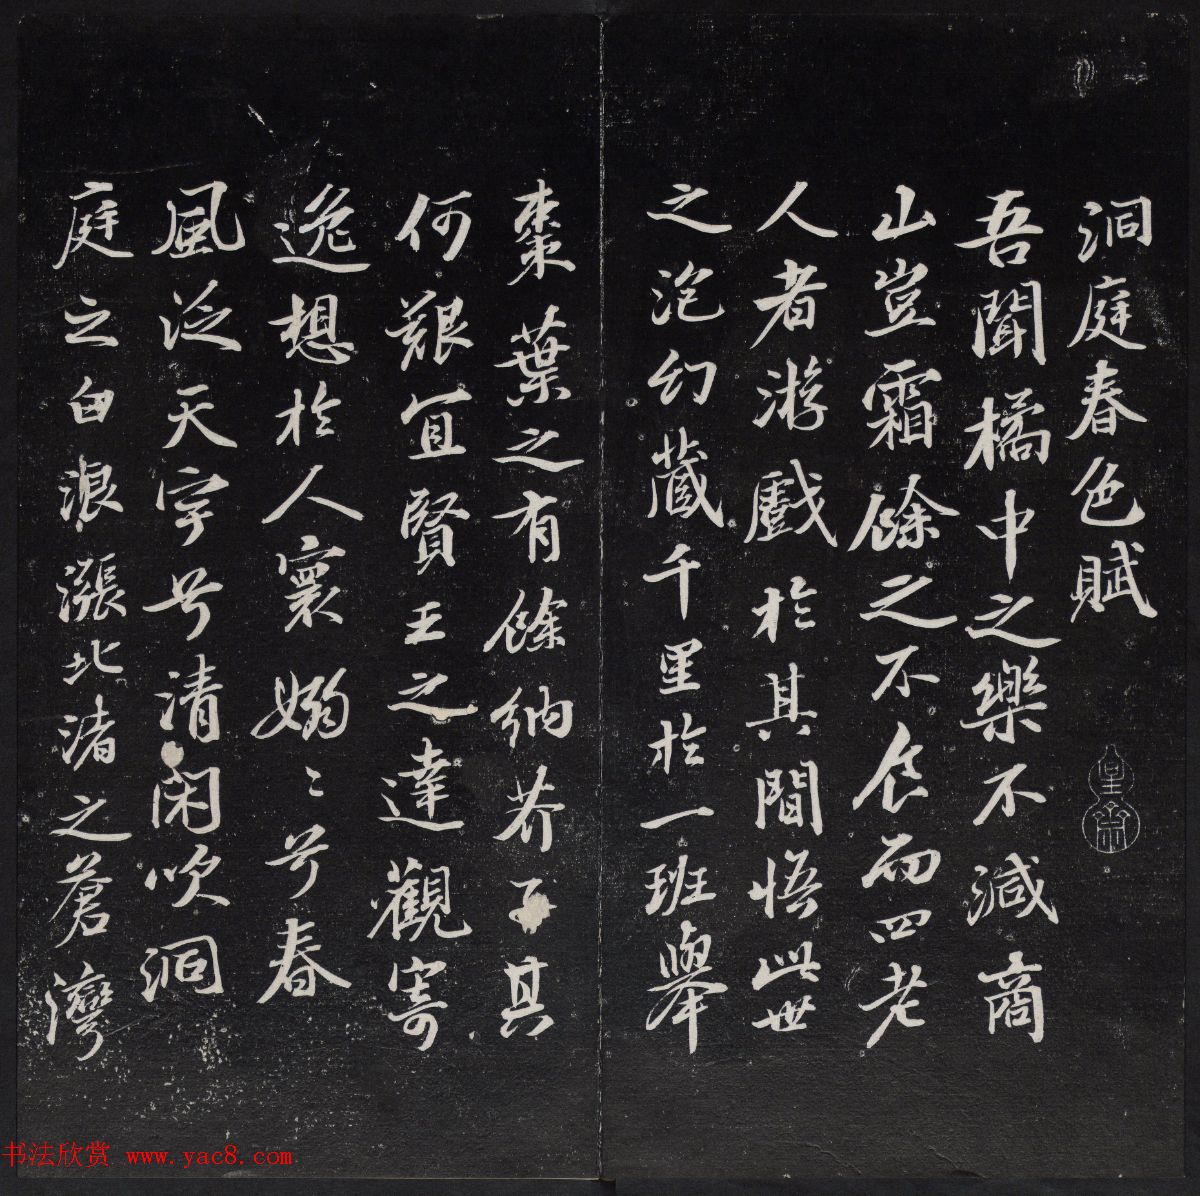 洞庭春色賦
吾聞橘中之樂不減商
山豈霜餘之不食而四老
人者游戲於其間悟此世
之泡幻藏千里於一班舉
棗葉之有餘納芥子其
何艱宜賢王之達觀寄
逸想於人寰嫋〻兮春
風泛天宇兮清閑吹洞
庭之白浪漲北渚之蒼灣
书法欣赏 www.yac8.com